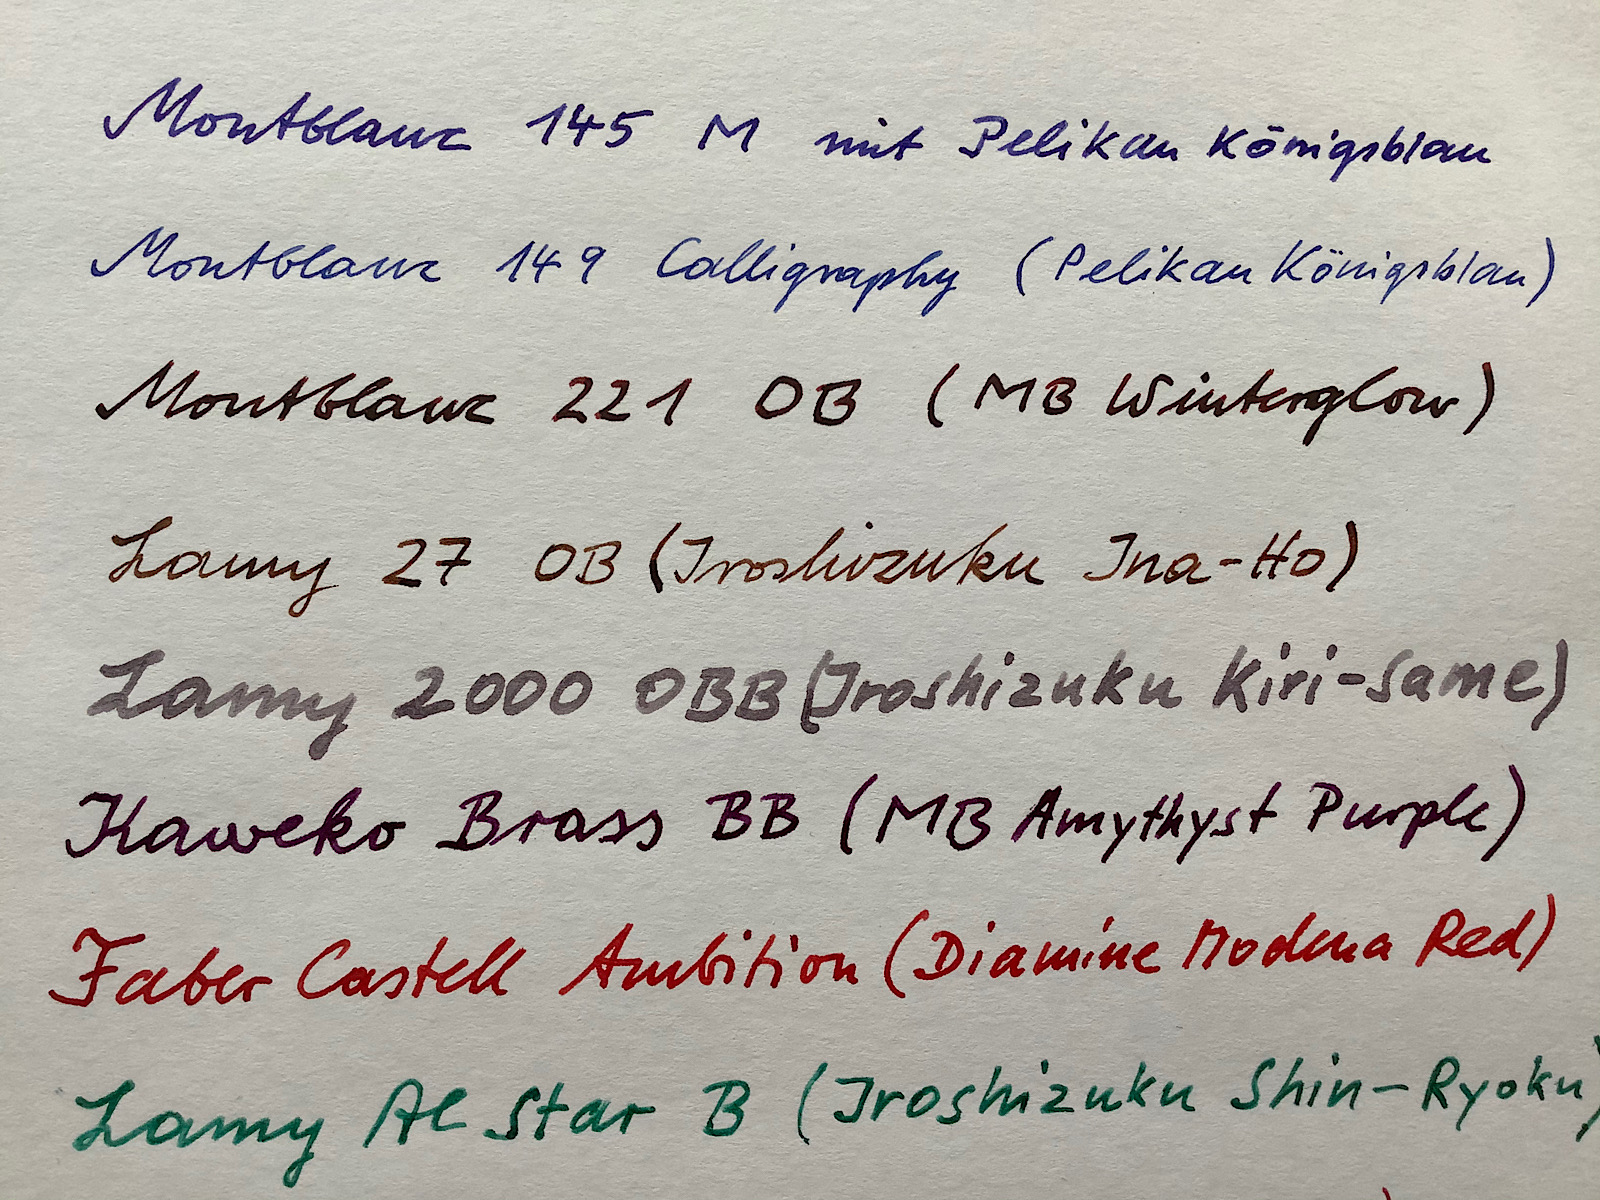 Montblanc 145 M mit Pelikan Königsblau
Montblanc 149 Calligraphy (Pelikan Königsblau)
Montblanc 221 OB (MB Winterglow)
Lamy 27 OB (Iroshizuku Ina-Ho)
Lamy 2000 OBB (Iroshizuku Kiri-Same)
Kaweko Brass BB (MB Amythyst Purple)
Faber Castell Ambition (Diamine Modena Red)
Lamy Al Star B (Iroshizuku Shin-Ryoku)